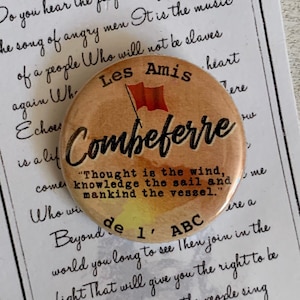 Do you hear the
the song of angry men It is the music
of a people Who will not be slaves
again heart
Echoes
is a
Beyond
world you long to see Then join in the
That will give you the right to be
people sing
Les Amis
Combeferre
"Thought is the wind,
knowledge the sail and
mankind the vessel."
de l' ABC